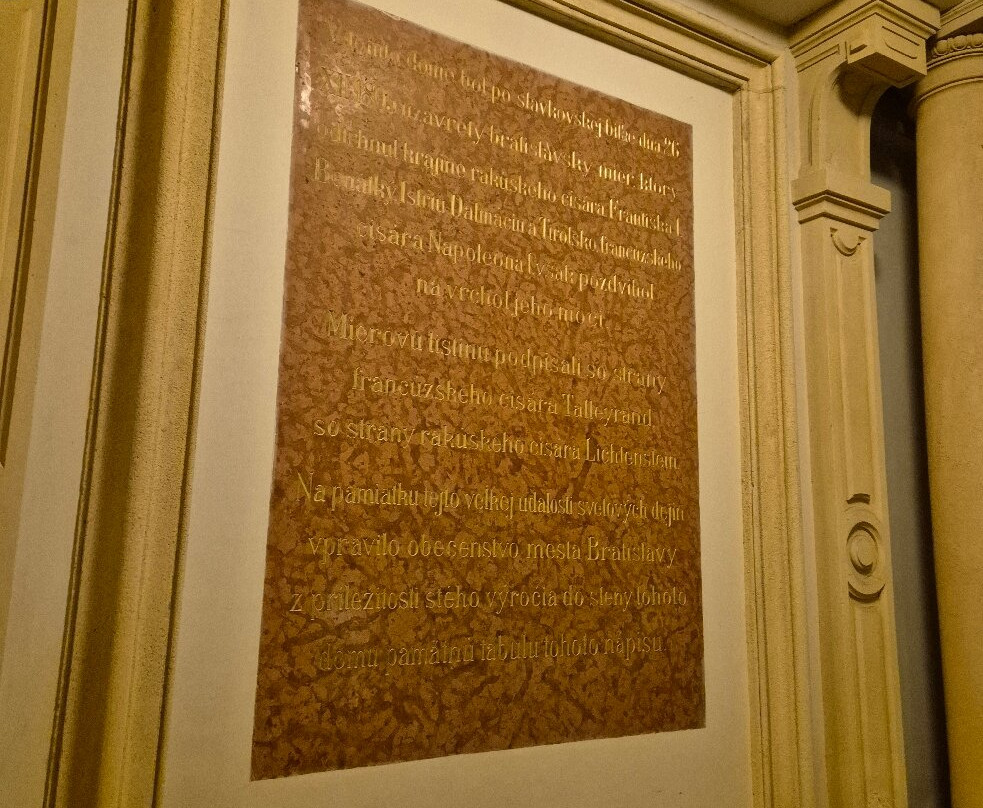 V tomto dome bol po slavkovskej bitke dňa 26
uzavretý bratislavský mier, ktorý
odtrhnul krajine rakúskeho cisára Františka I.
Benátky, Istriu, Dalmáciu a Tirolsko, francúzskeho
cisára Napoleona však pozdvihol
na vrchol jeho moci.
Mierovú listinu podpísali so strany
francúzskeho cisára Talleyrand,
so strany rakúskeho cisára Lichtenstein.
Na pamiatku tejto veľkej udalosti svetových dejín
vpravilo obecenstvo mesta Bratislavy
z príležitosti stého výročia do steny tohoto
domu pamätnú tabuľu tohoto nápisu.